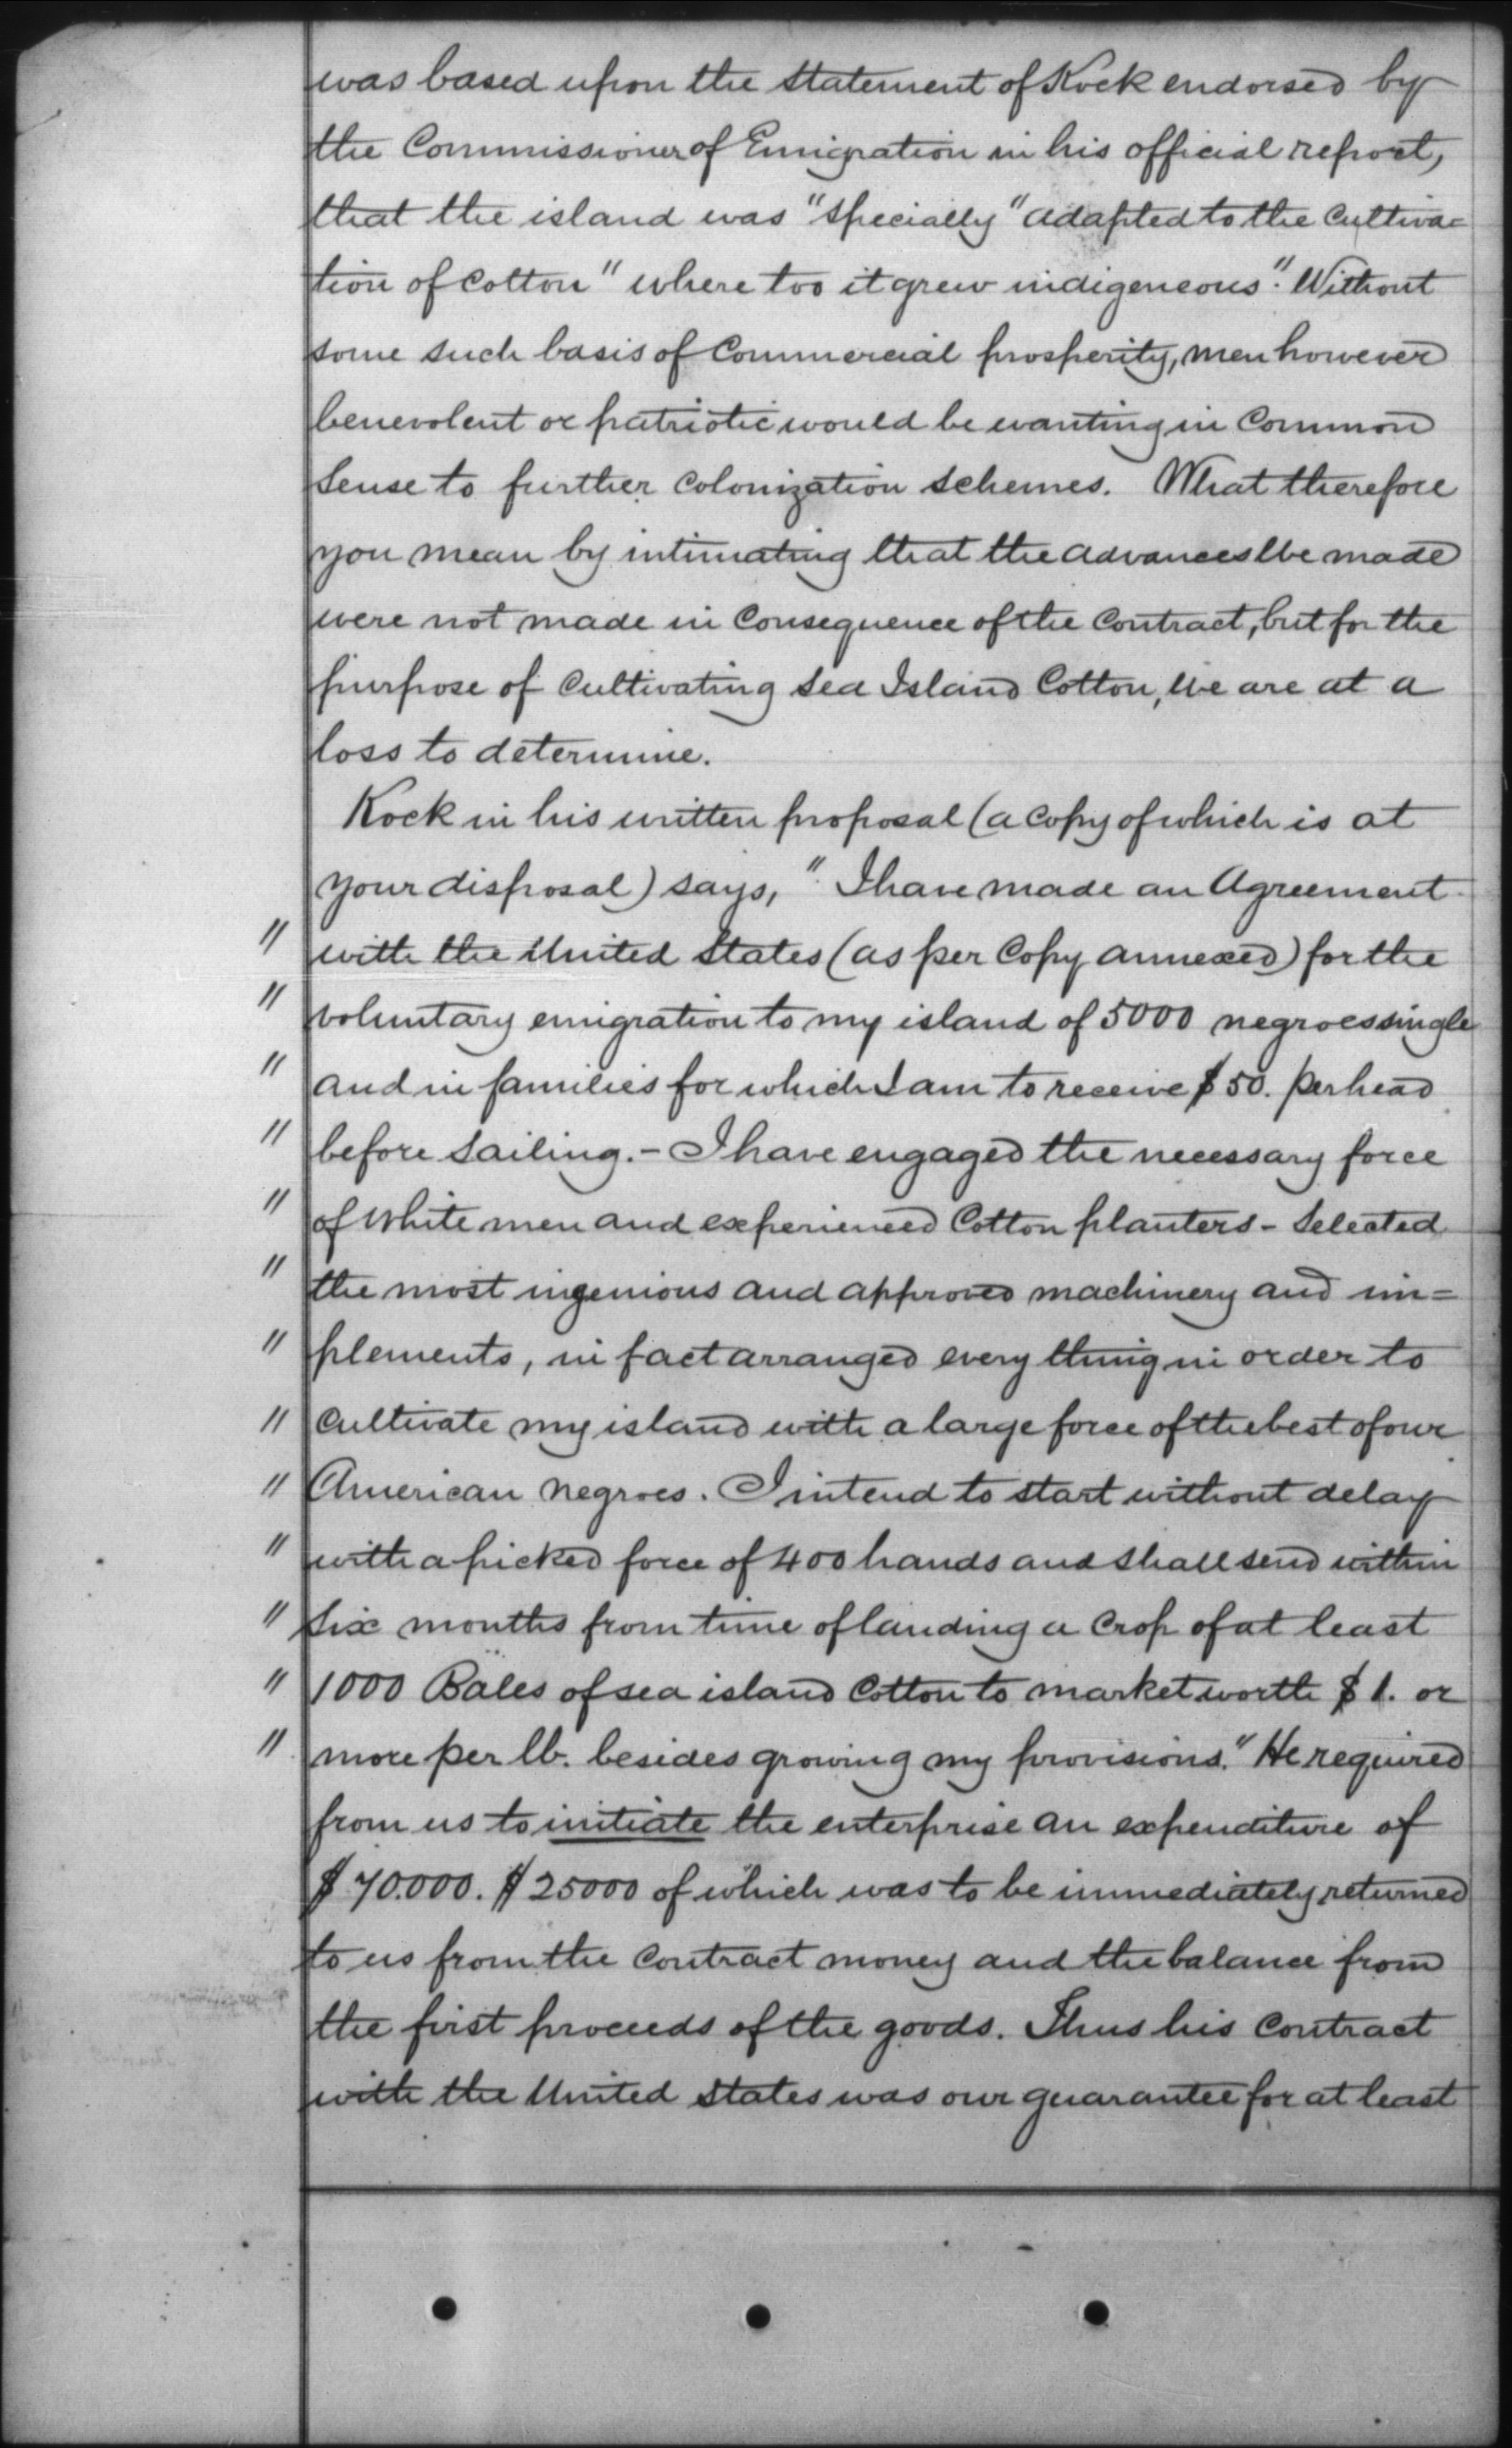 was based upon the statement of Kock endorsed by
the Commissioner of Emigration in his official report,
that the island was "specially" adapted to the cultiva=
tion of cotton "where too it grew indigeneous". Without
some such basis of Commercial prosperity, men however
benevolent or patriotic would be wanting in Common
sense to further colonization schemes. What therefore
you mean by intimating that the advances We made
were not made in Consequence of the Contract, but for the
purpose of cultivating Sea Island Cotton, We are at a
loss to determine.
Kock in his written proposal (a copy of which is at
your disposal) says, "I have made an Agreement
" with the United States (as per Copy annexed) for the
" voluntary emigration to my island of 5000 negroes single
" and in families for which I am to receive $50. per head
" before sailing. - I have engaged the necessary force
" of White men and experienced Cotton planters - Selected
" the most ingenious and approved machinery and im=
" plements, in fact arranged every thing in order to
" cultivate my island with a large force of the best of our
" American negroes. I intend to start without delay
" with a picked force of 400 hands and shall send within
" six months from time of landing a crop of at least
" 1000 Bales of sea island Cotton to market worth $1. or
" more per lb. besides growing my provisions." He required
from us to initiate the enterprise an expenditure of
$70.000. $25000 of which was to be immediately returned
to us from the contract money and the balance from
the first proceeds of the goods. Thus his Contract
with the United States was our guarantee for at least